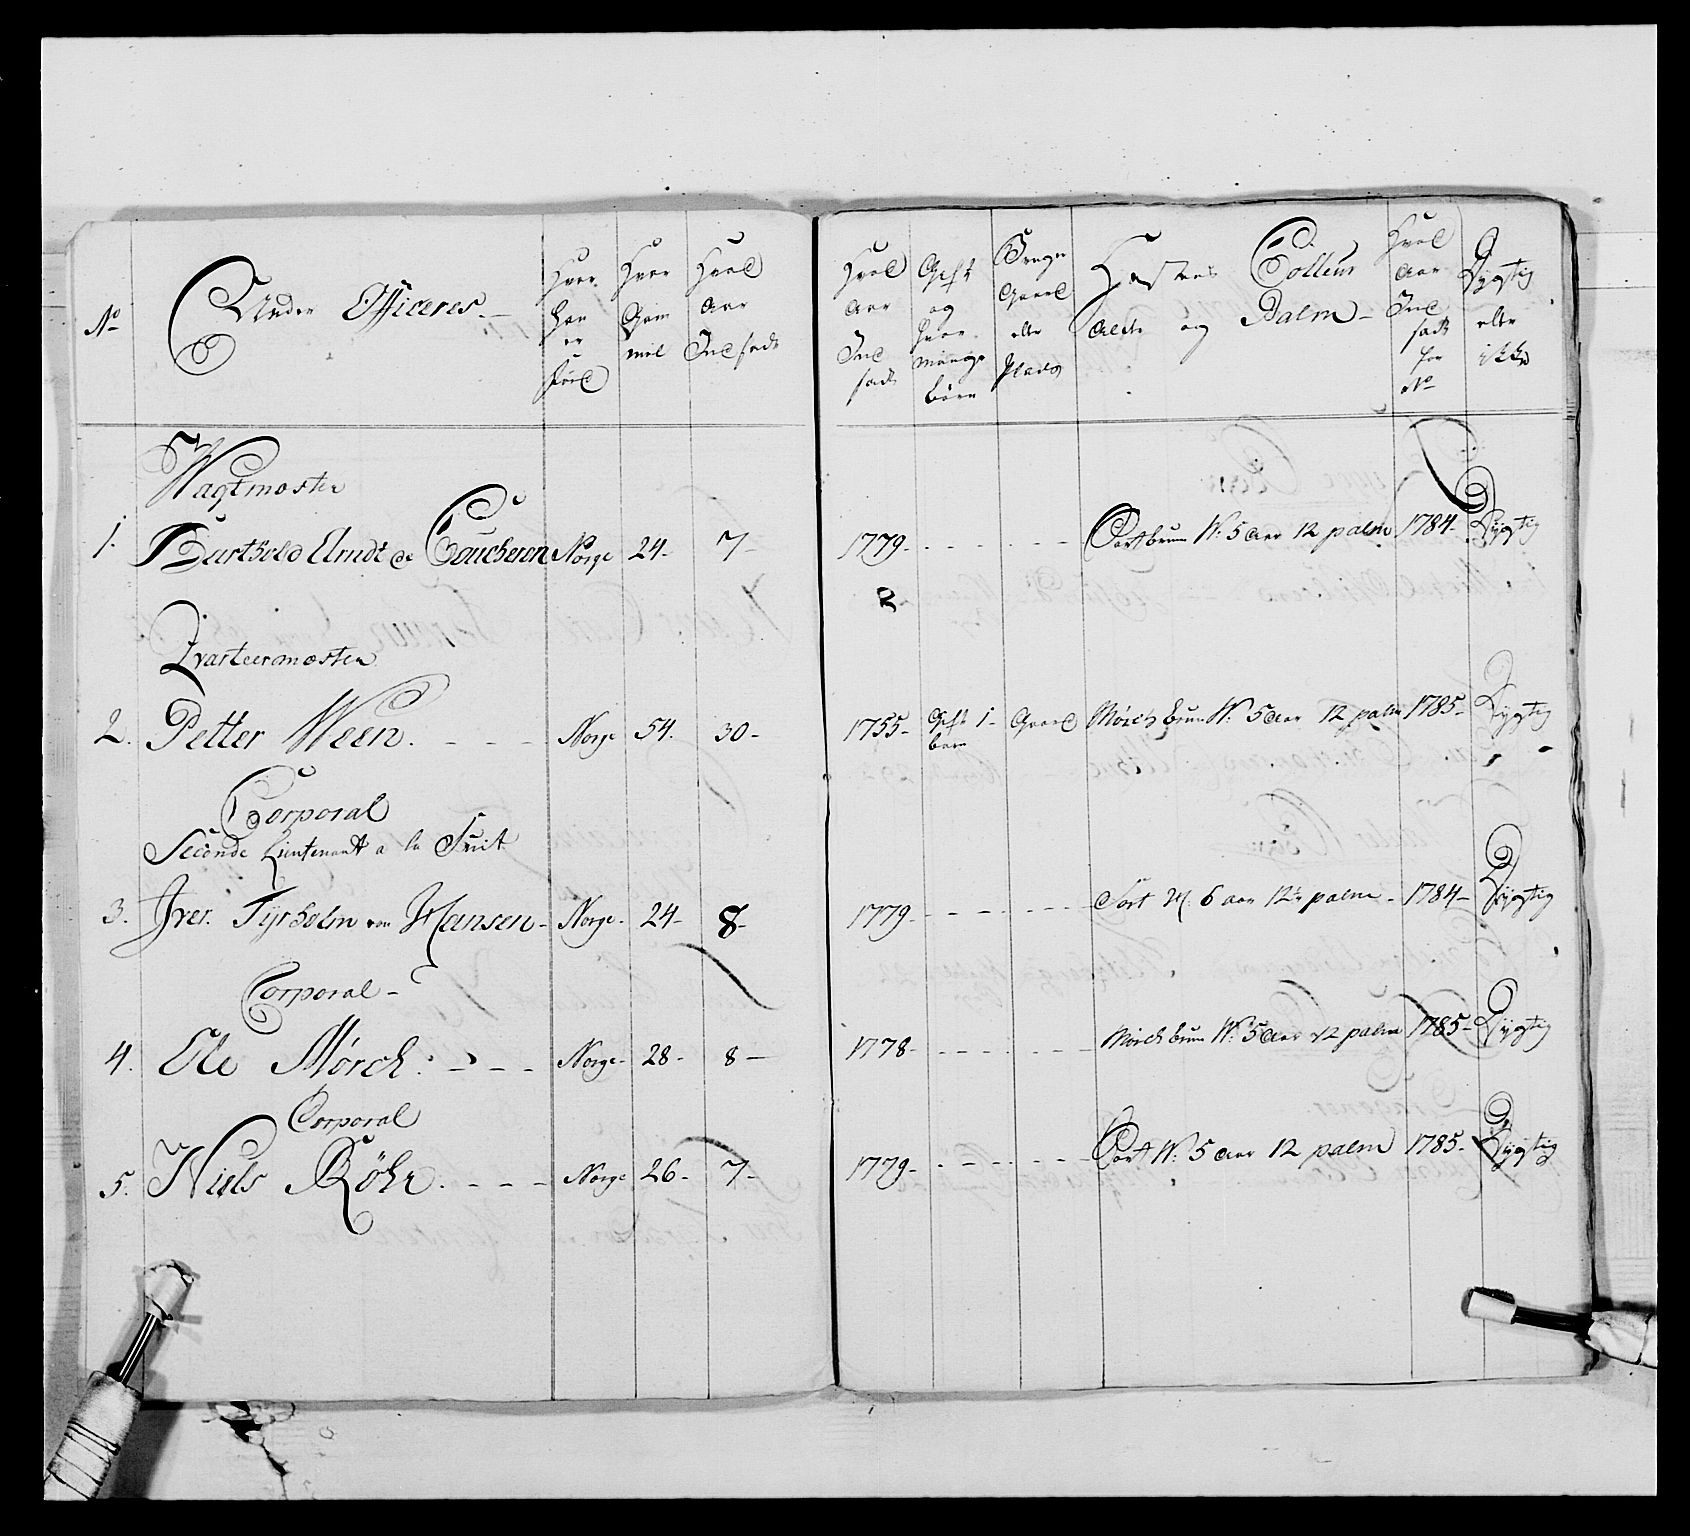 No
Under Officeres.
Hvor
han
er
fød
Hvor
Gam
mel
Hvad
Aar
Ind sadt
Hvad
Aar
Ind
sadt
Gift
og
hvor
mange
børn
Bruger
Gaard
eller
Plads
Hæstens Colleur
Alder og Palm
Hvad
Aar
Ind
sadt
for
No
Dygtig
eller
ikke
Wagtmæster
1. Barthold Arndt de Coucheron Norge 24 7 1779 W: 5 aar 12 palm 1784 Dygtig
Qvarteermæster
2. Petter Ween Norge 54. 30 1755 Gift 1 Gaard Mörch brun W: 5 aar 12 palm 1785 Dygtig
barn
Corporal
Seconde Lieutenant a la Suit
3. Iver Tyrholm von Hansen Norge 24 8 1779 Sort H. 6 aar 12½ palm 1784 Dygtig
Corporal
4. Ole Mörch Norge 28 8 1778 Mörch brun W: 5 aar 12 palm 1785 Dygtig
Corporal
5. Niels Röhr Norge 26 7 1779 Sort W: 5 aar 12 palm 1785 Dygtig